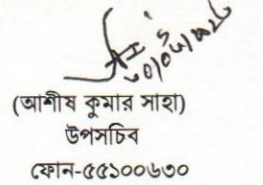 (আশীষ কুমার সাহা)
উপসচিব
ফোন-৫৫১০০৬৩০